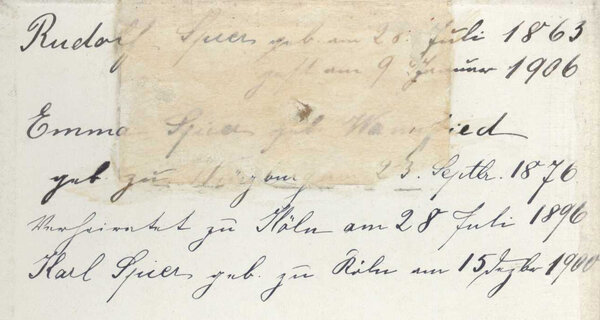 Rudolf Spier geb am 28. Juli 1863
gest am 9 Januar 1906
Emma Spier geb
geb. zu 23. Septbr. 1876
Verheiratet zu Köln am 28 Juli 1896
Karl Spier geb. zu Köln am 15 Dezbr 1900